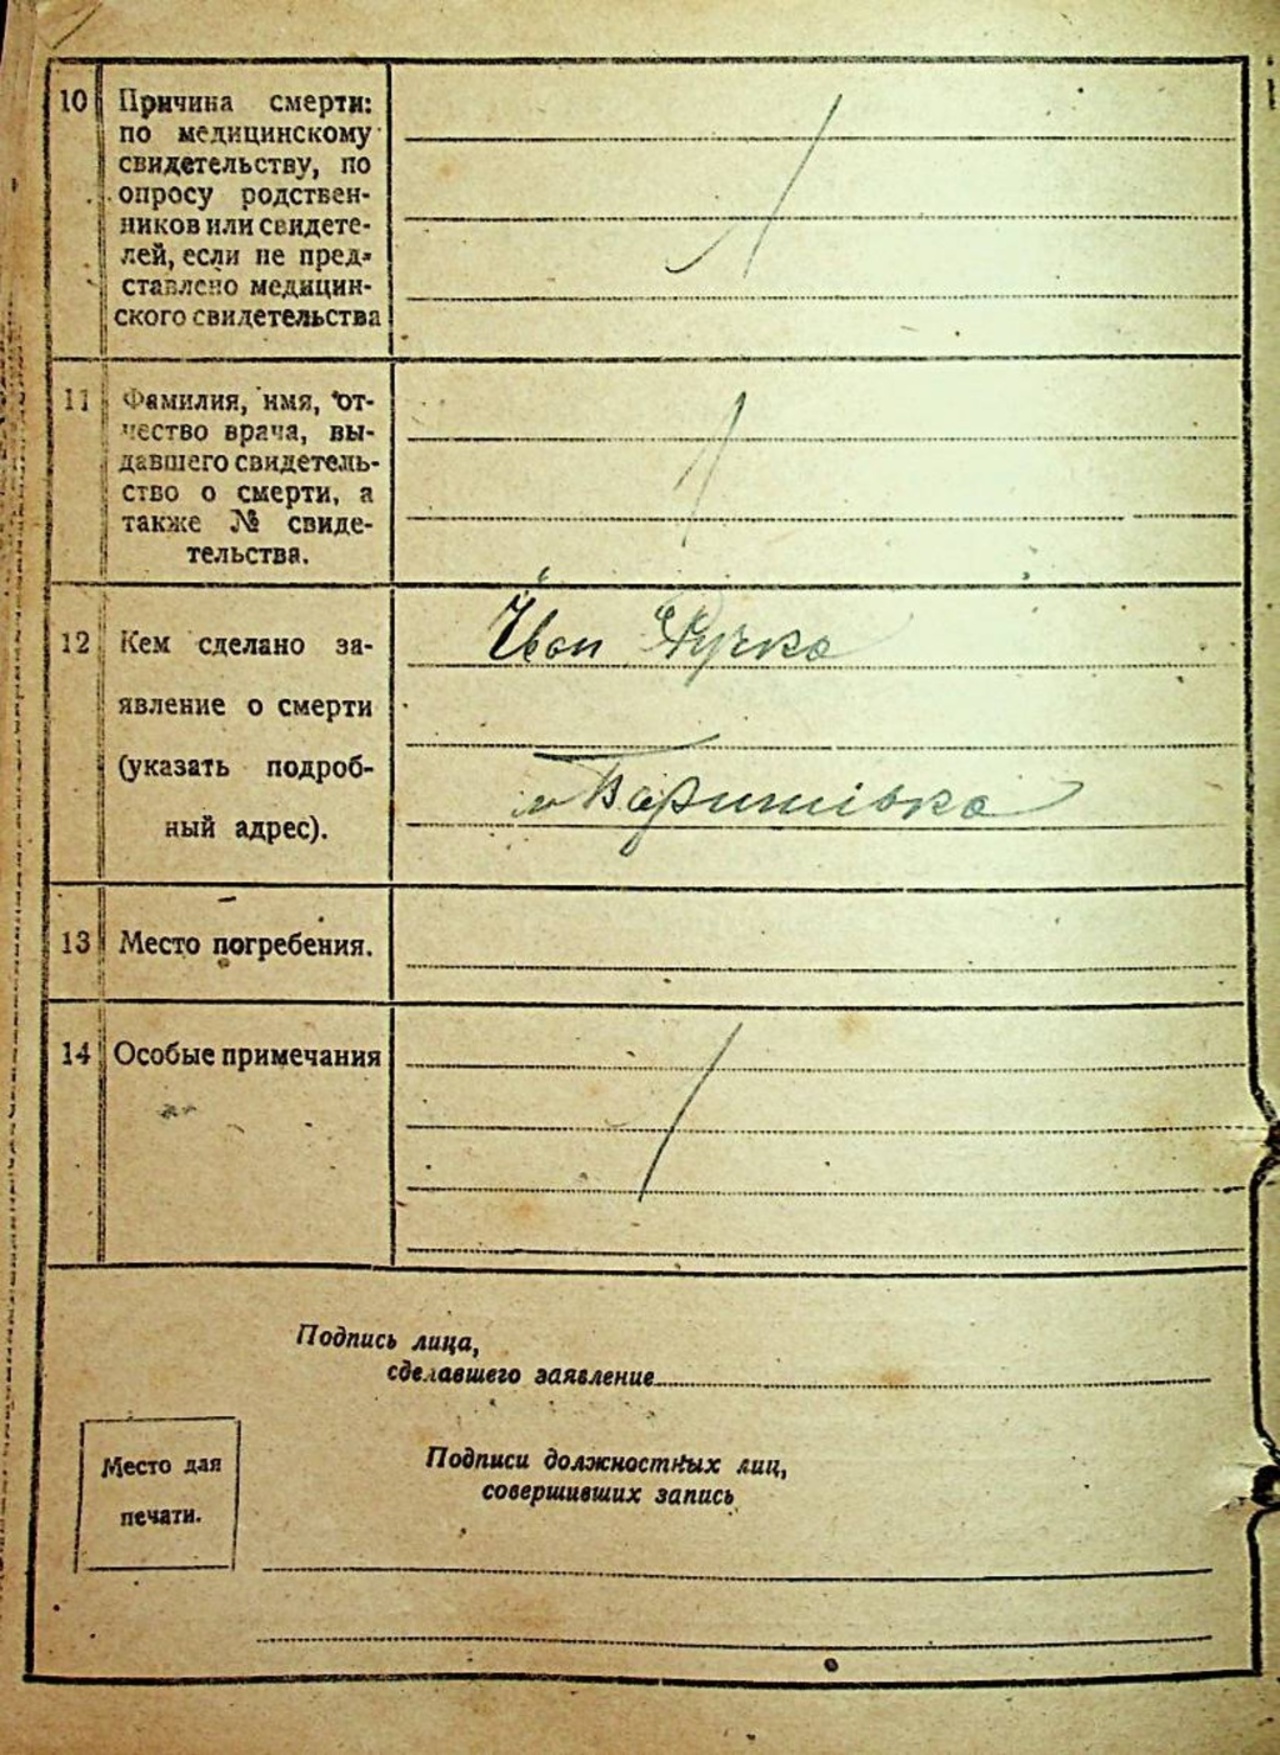 10 Причина смерти:
по медицинскому
свидетельству, по
опросу родствен-
ников или свидете-
лей, если не пред-
ставлено медицин-
ского свидетельства
11 Фамилия, имя, от-
чество врача, вы-
давшего свидетель-
ство о смерти, а
также № свиде-
тельства.
12 Кем сделано за-
явление о смерти
(указать подроб-
ный адрес).
Іван Ручка
м Баришівка
13 Место погребения.
14 Особые примечания
Подпись лица,
сделавшего заявление
Место для
печати.
Подписи должностных лиц,
совершивших запись